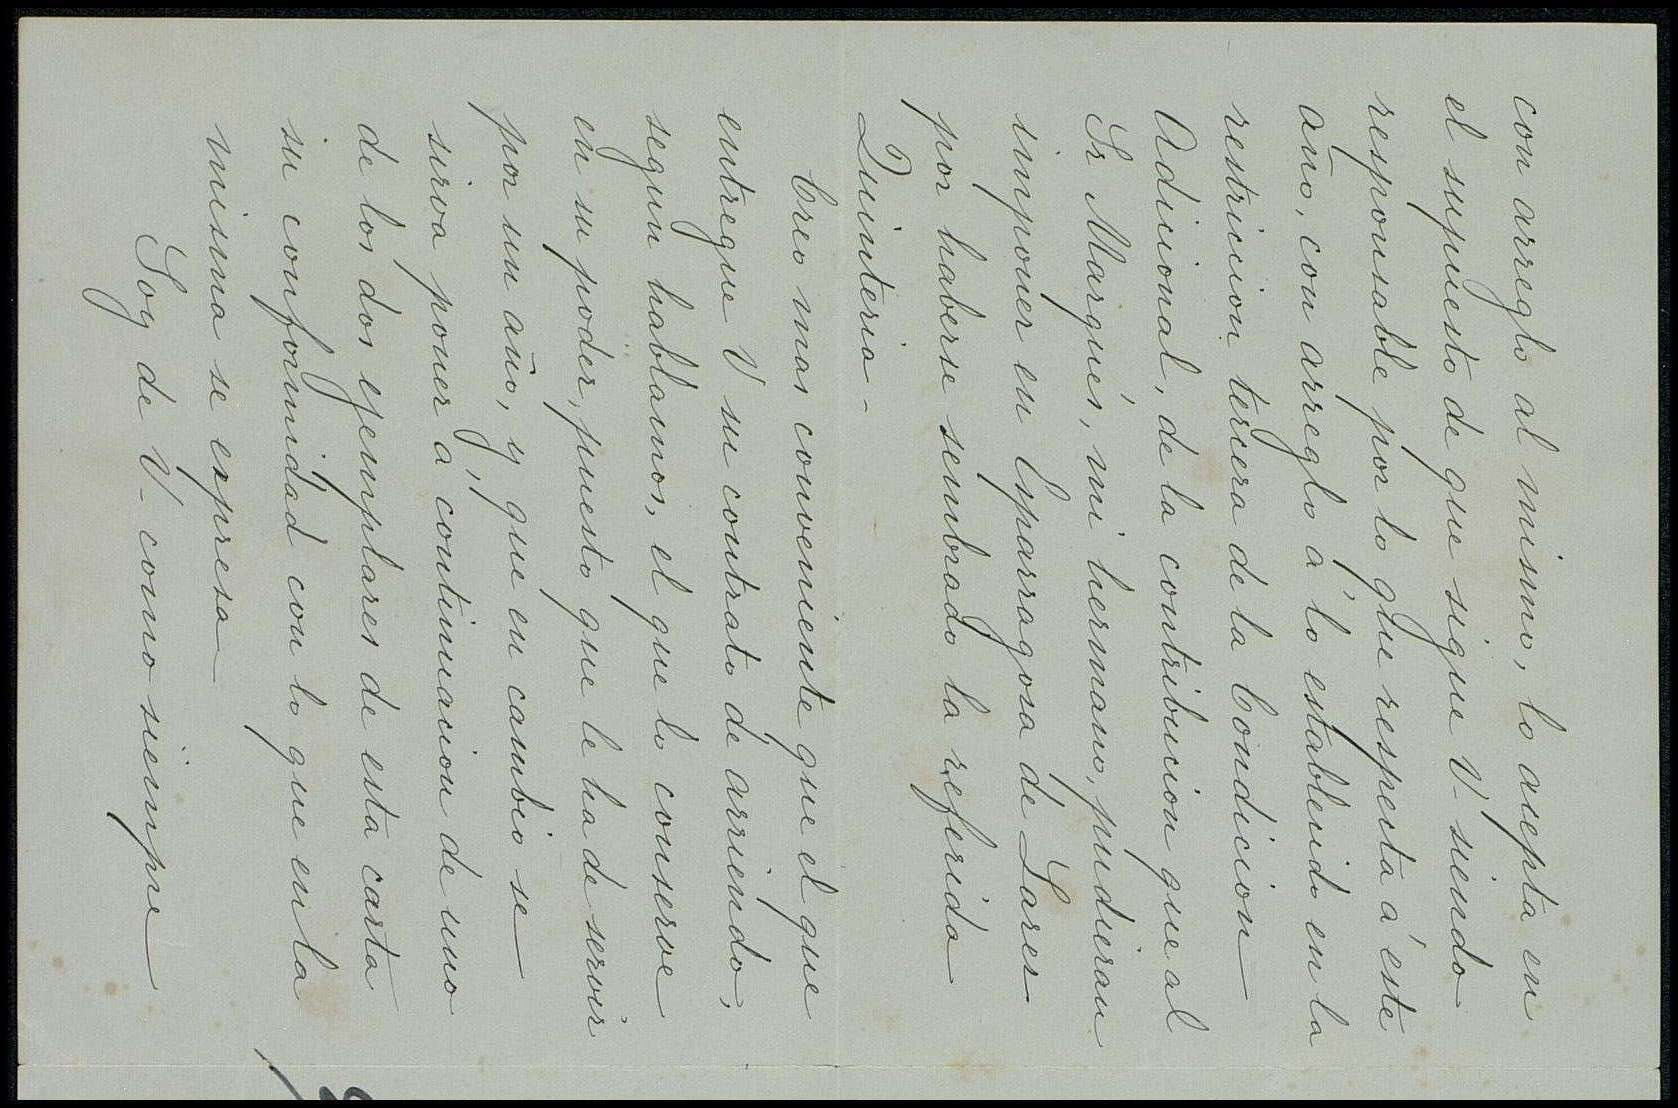 con arreglo al mismo, lo acepta en
el supuesto de que sigue V- siendo
responsable por lo que respecta á éste
año, con arreglo á lo establecido en la
restriccion tercera de la Condicion
Adicional, de la contribucion que al
Sr Marqués, mi hermano, pudieran
imponer en Esparragosa de Lares
por haberse sembrado la referida
Quinteria-
Creo mas conveniente que el que
entregue V su contrato de arriendo,
segun hablamos, el que lo conserve
en su poder, puesto que le ha de servir
por un año, y, que en cambio se
sirva poner á continuacion de uno
de los dos ejemplares de esta carta
su conformidad con lo que en la
misma se expresa
Soy de V- como siempre